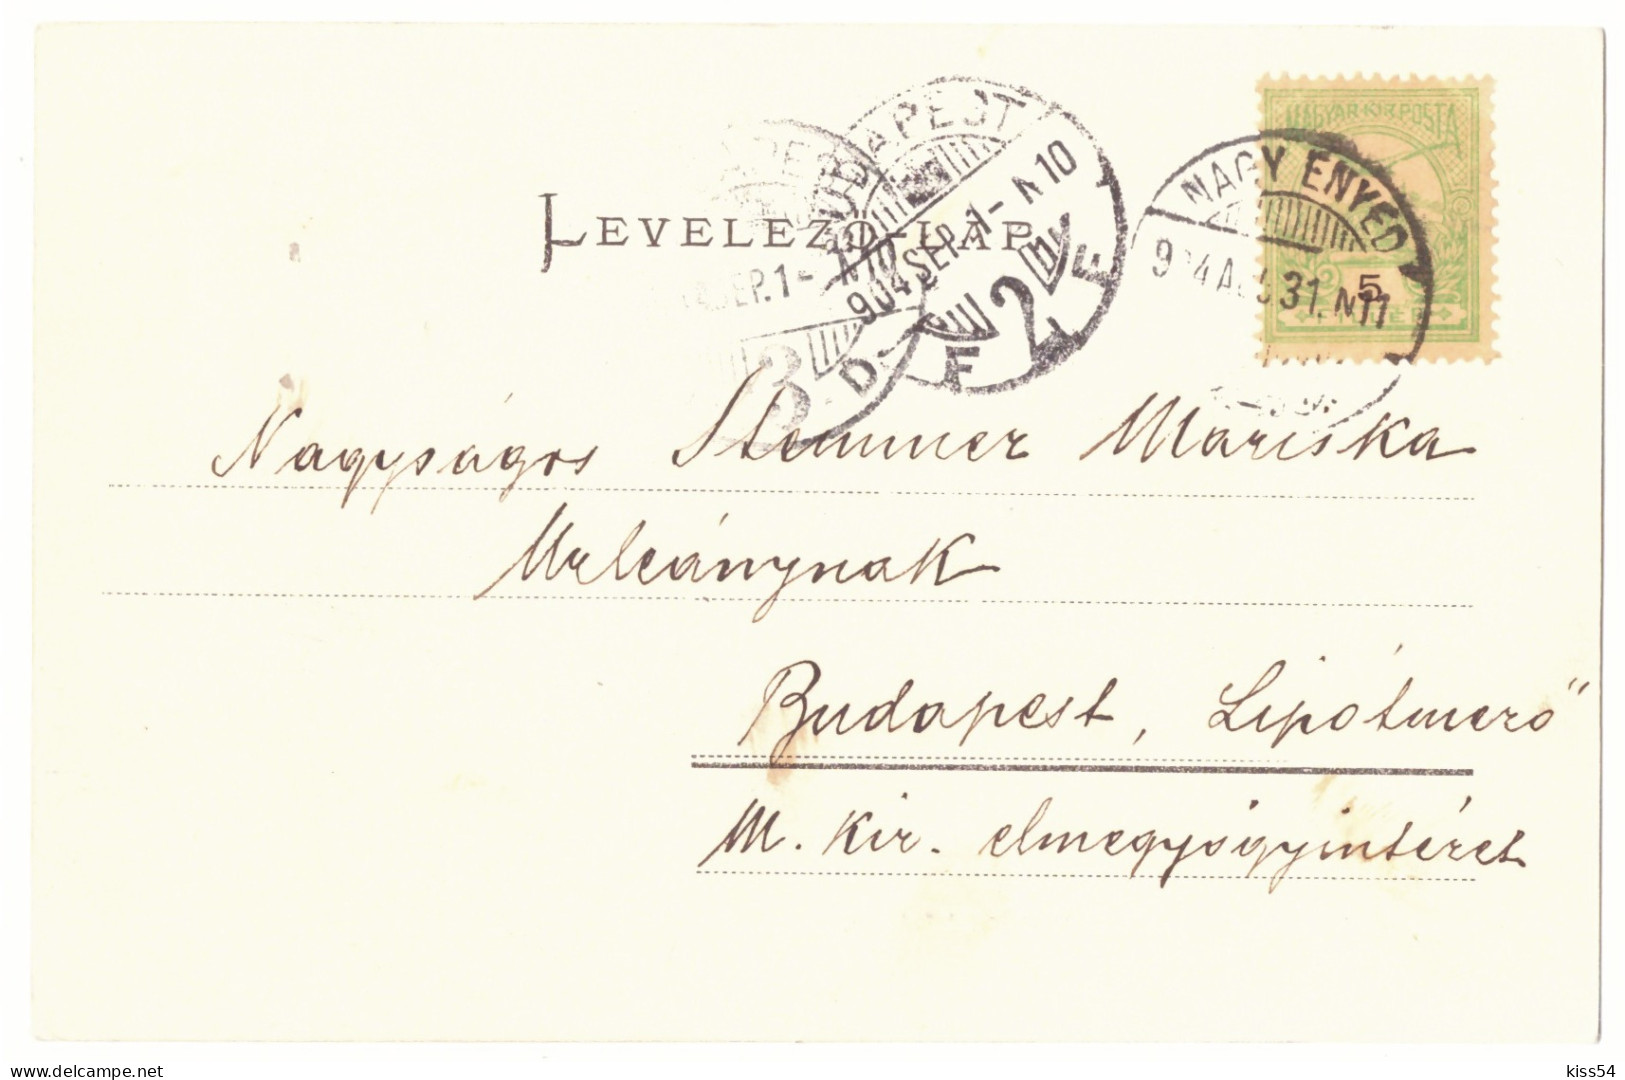 MAGYAR·KIR·POSTA
NAGY ENYED
904 AUG 31. N11
5
BUDAPEST
904 SEP. 1 - N 10
2
D. E.
SEP. 1 - N10
3
LEVELEZŐ-LAP.
Nagyságos Stemmer Mariska
Urleánynak
Budapest, Lipótmező
M. Kir. elmegyógyintézet
delcampe.net
kiss54